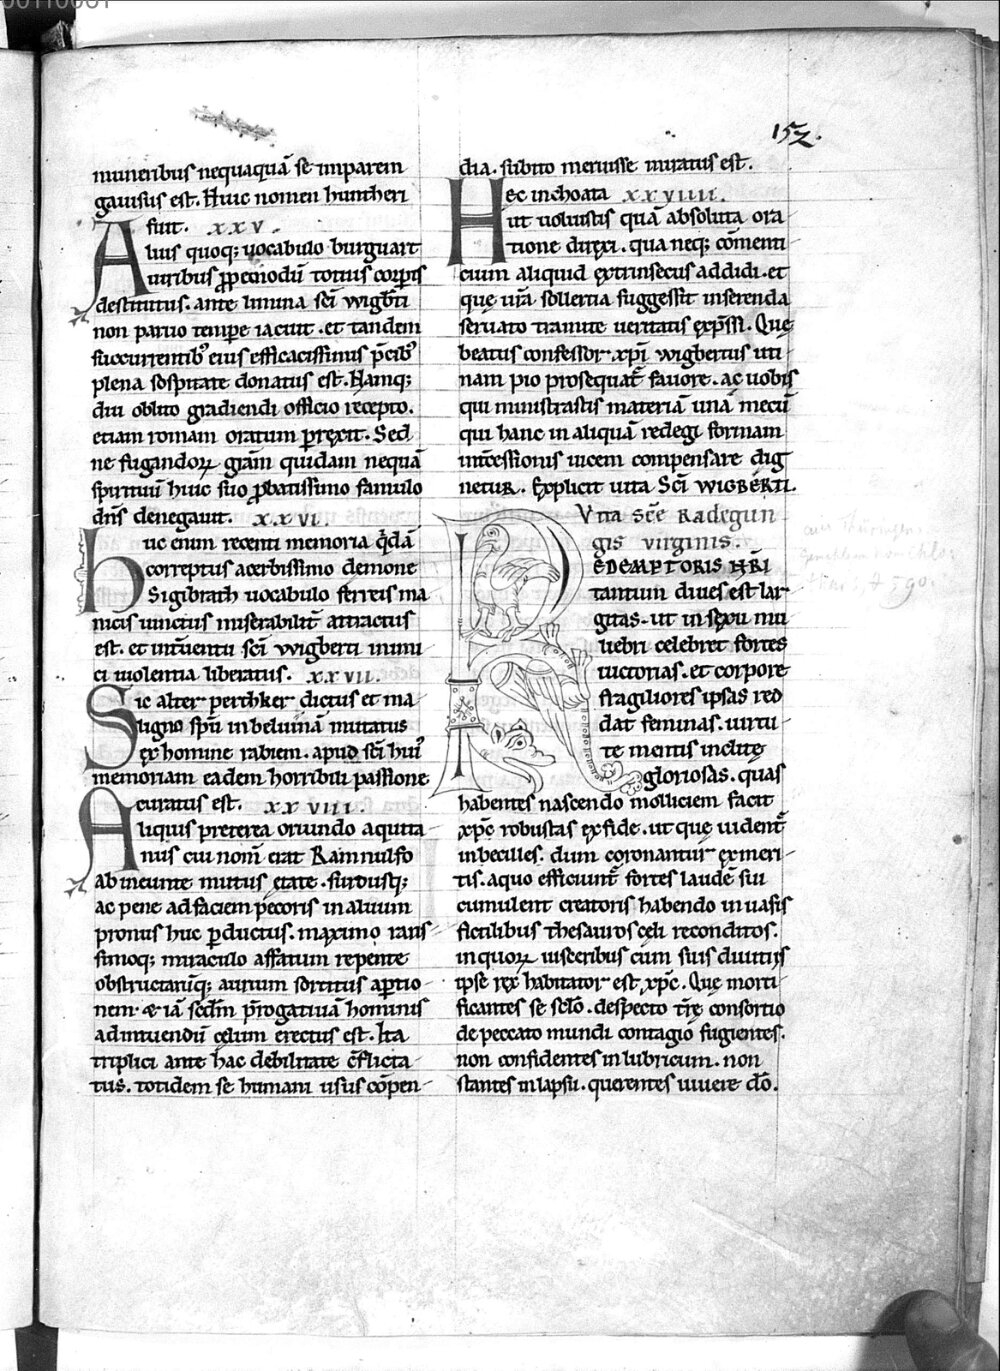 152.
muneribus nequaquā se imparem
gauisus est. Huic nomen huntheri
fuit. xxv.
Alius quoq; uocabulo burguart
uiribus ꝓpemodū totius corꝑis
destitutus. ante limina sc̄i wigb̄ti
non paruo tempe iacuit. et tandem
succurrentib' eius efficacissimis p̄cib'
plena sospitate donatus est. Namq;
diu oblito gradiendi officio recepto.
etiam romam oratum ꝑrexit. Sed
ne fugandoꝝ gr̄am quidam nequā
spirituū huic suo ꝓbatissimo famulo
dn̄s denegauit. xxvi.
huc enim recenti memoria q̄dā
correptus acerbissimo demone
Sigibrath uocabulo ferreis ma
nicis uinctus miserabilit̄ attractus
est. et int̄uentu sc̄i wigberti inimi
ci uiolentia liberatus. xxvii.
Sic alter perthker dictus et ma
ligno sp̄u in beluinā mutatus
ex homine rabiem. apud sc̄i hui'
memoriam eadem horribili passione
curatus est. xxviii.
Aliquis preterea oriundo aquita
nus cui nom̄ erat Ramnulfo
ab ineunte mutus etate. surdusq;
ac pene ad faciem pecoris in aluum
pronus huc ꝑductus. maximo raris
simoq; miraculo affatum repente
obstructarūq; aurium sortitus aptio
nem. & iā sc̄dm p̄rogatiuā hominis
ad intuendū celum erectus est. Ita
triplici ante hac debilitate c̄flicta
tus. totidem se humani usus cōpen
dia. subito meruisse miratus est.
Hec inchoata xxviiii.
ut uoluistis quā absoluta ora
tione direxi. qua neq; cōmenti
cium aliquid extrinsecus addidi. et
que ur̄a sollertia suggessit inserenda
seruato tramite ueritatis exp̄ssi. Que
beatus confessor xp̄i wigbertus uti
nam pio prosequat̄ fauore. ac uobis
qui ministrastis materiā unā mecū
qui hanc in aliquā redegi formam
int̄cessionis uicem compensare dig
netur. Explicit uita Sc̄i WIGBERTI.
Vita sc̄e Radegun
gis virginis.
REDEMPTORIS NR̄I
tantum diues est lar
gitas. ut in sexu mu
liebri celebret fortes
uictorias. et corpore
fragiliores ipsas red
dat feminas. uirtu
te mentis inclite
gloriosas. quas
habentes nascendo molliciem facit
xp̄c robustas ex fide. ut que uident̄
inbecilles. dum coronantur ex meri
tis. a quo efficiunt̄ fortes laudē sui
cumulent creatoris habendo in uasis
fictilibus thesauros celi reconditos.
in quoꝝ uisceribus cum suis diuitiis
ipse rex habitator est xp̄c. Que morti
ficantes se sc̄lo. despecto tr̄e consortio
de peccato mundi contagio fugientes.
non confidentes in lubricum. non
stantes in lapsu. querentes uiuere dō.